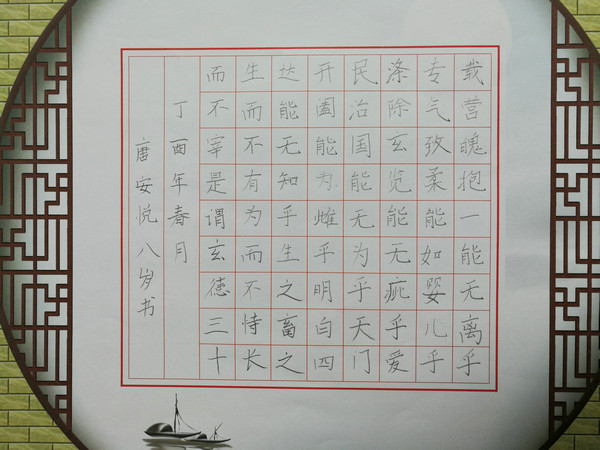 载营魄抱一能无离乎
专气致柔能如婴儿乎
涤除玄览能无疵乎爱
民治国能无为乎天门
开阖能为雌乎明白四
达能无知乎生之畜之
生而不有为而不恃长
而不宰是谓玄德三十
丁酉年春月
唐安悦八岁书